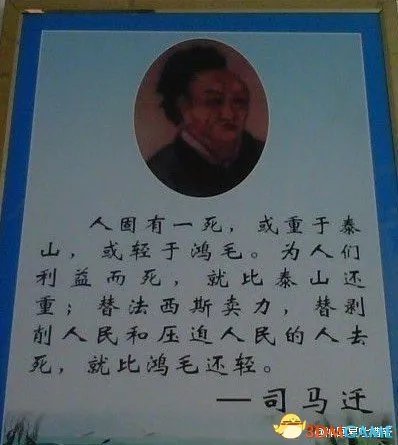 人固有一死，或重于泰
山，或轻于鸿毛。为人们
利益而死，就比泰山还
重；替法西斯卖力，替剥
削人民和压迫人民的人去
死，就比鸿毛还轻。
—司马迁